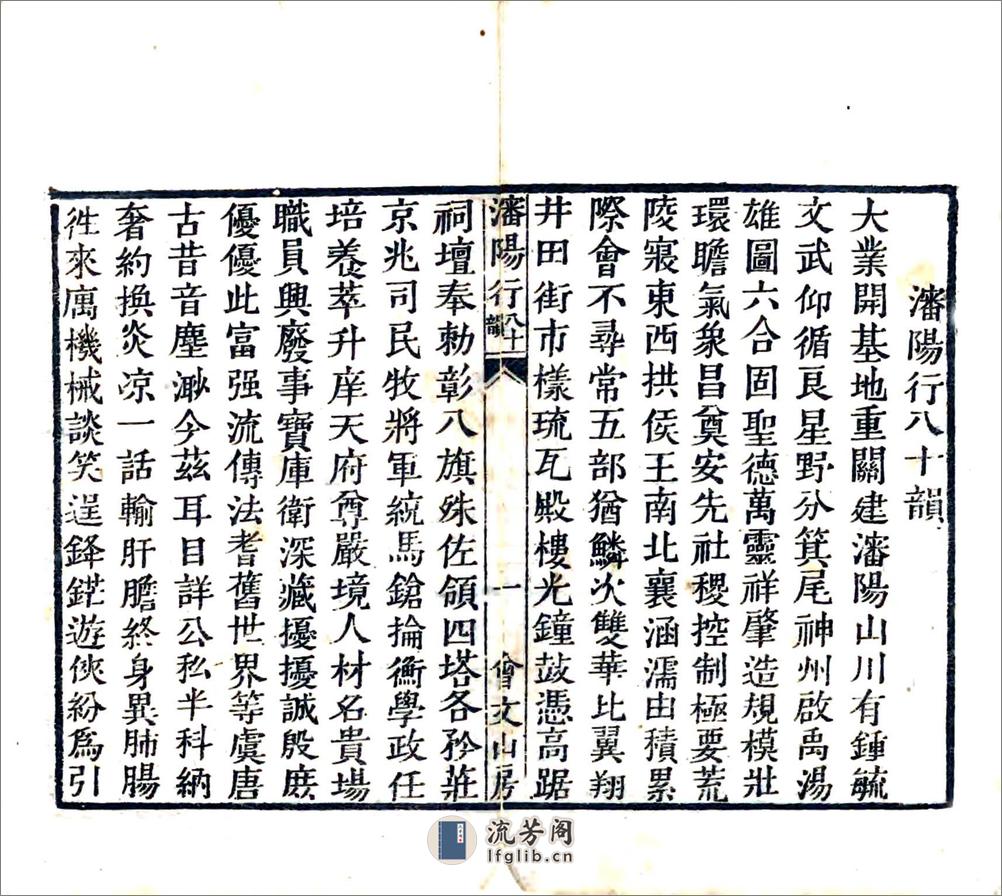 瀋陽行八十韻
大業開基地重關建瀋陽山川有鍾毓
文武仰循良星野分箕尾神州啟禹湯
雄圖六合固聖德萬靈祥肇造規模壯
環瞻氣象昌奠安先社稷控制極要荒
陵寢東西拱侯王南北襄涵濡由積累
際會不尋常五部猶鱗次雙華比翼翔
井田街市樣琉瓦殿樓光鐘鼓憑高踞
瀋陽行八十韻 一 會文山房
祠壇奉勅彰八旗殊佐領四塔各矜莊
京兆司民牧將軍統馬鎗掄衡學政任
培養萃升庠天府尊嚴境人材名貴場
職員興廢事寶庫衛深藏擾擾誠殷庶
優優此富强流傳法耆舊世界等虞唐
古昔音塵渺今茲耳目詳公私半科納
奢約換炎凉一話輸肝膽終身異肺腸
徃來厲機械談笑逞鋒鋩遊俠紛爲引
流芳阁
lfglib.cn